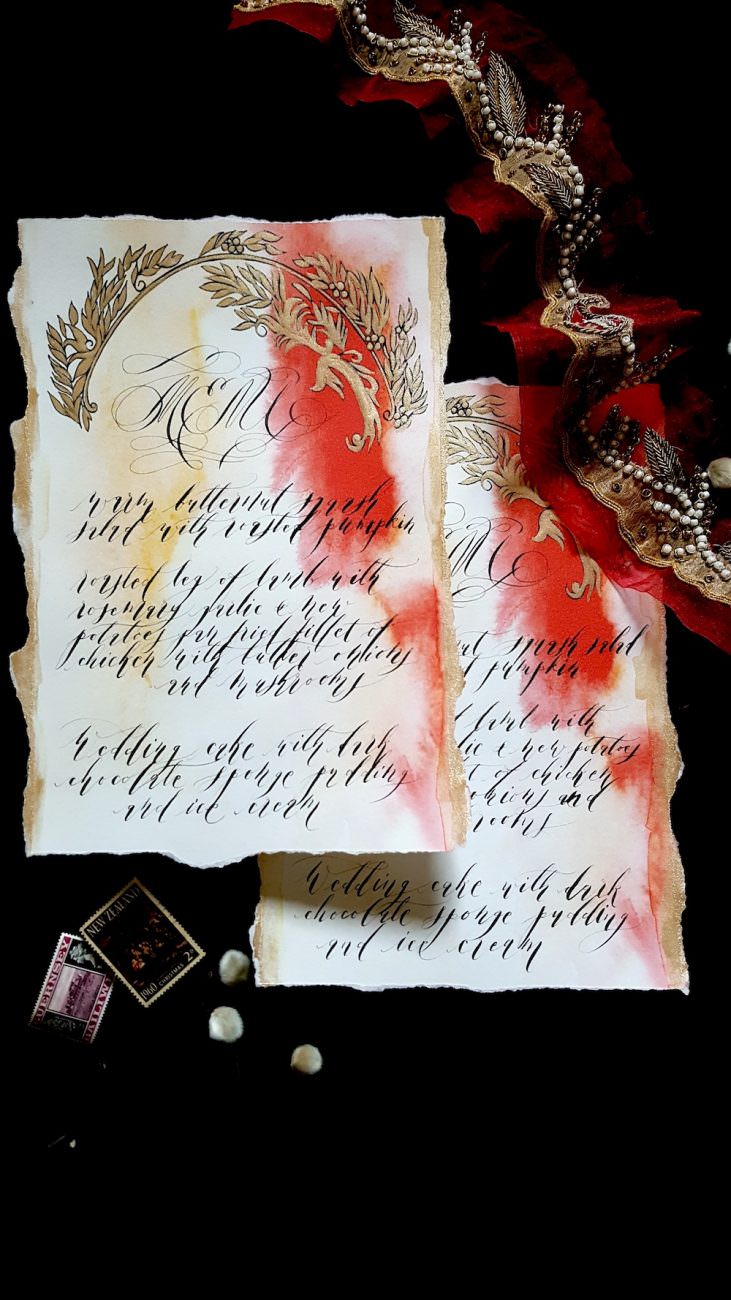 MENU
warm butternut squash
salad with roasted pumpkin
roasted leg of lamb with
rosemary garlic & new
potatoes pan fried fillet of
chicken with butter onions
and mushrooms
Wedding cake with dark
chocolate sponge pudding
and ice cream
squash salad
pumpkin
lamb with
& new potatoes
of chicken
onions and
rooms
Wedding cake with dark
chocolate sponge pudding
and ice cream
NEW ZEALAND
1960 CHRISTMAS 2D
GUERNSEY